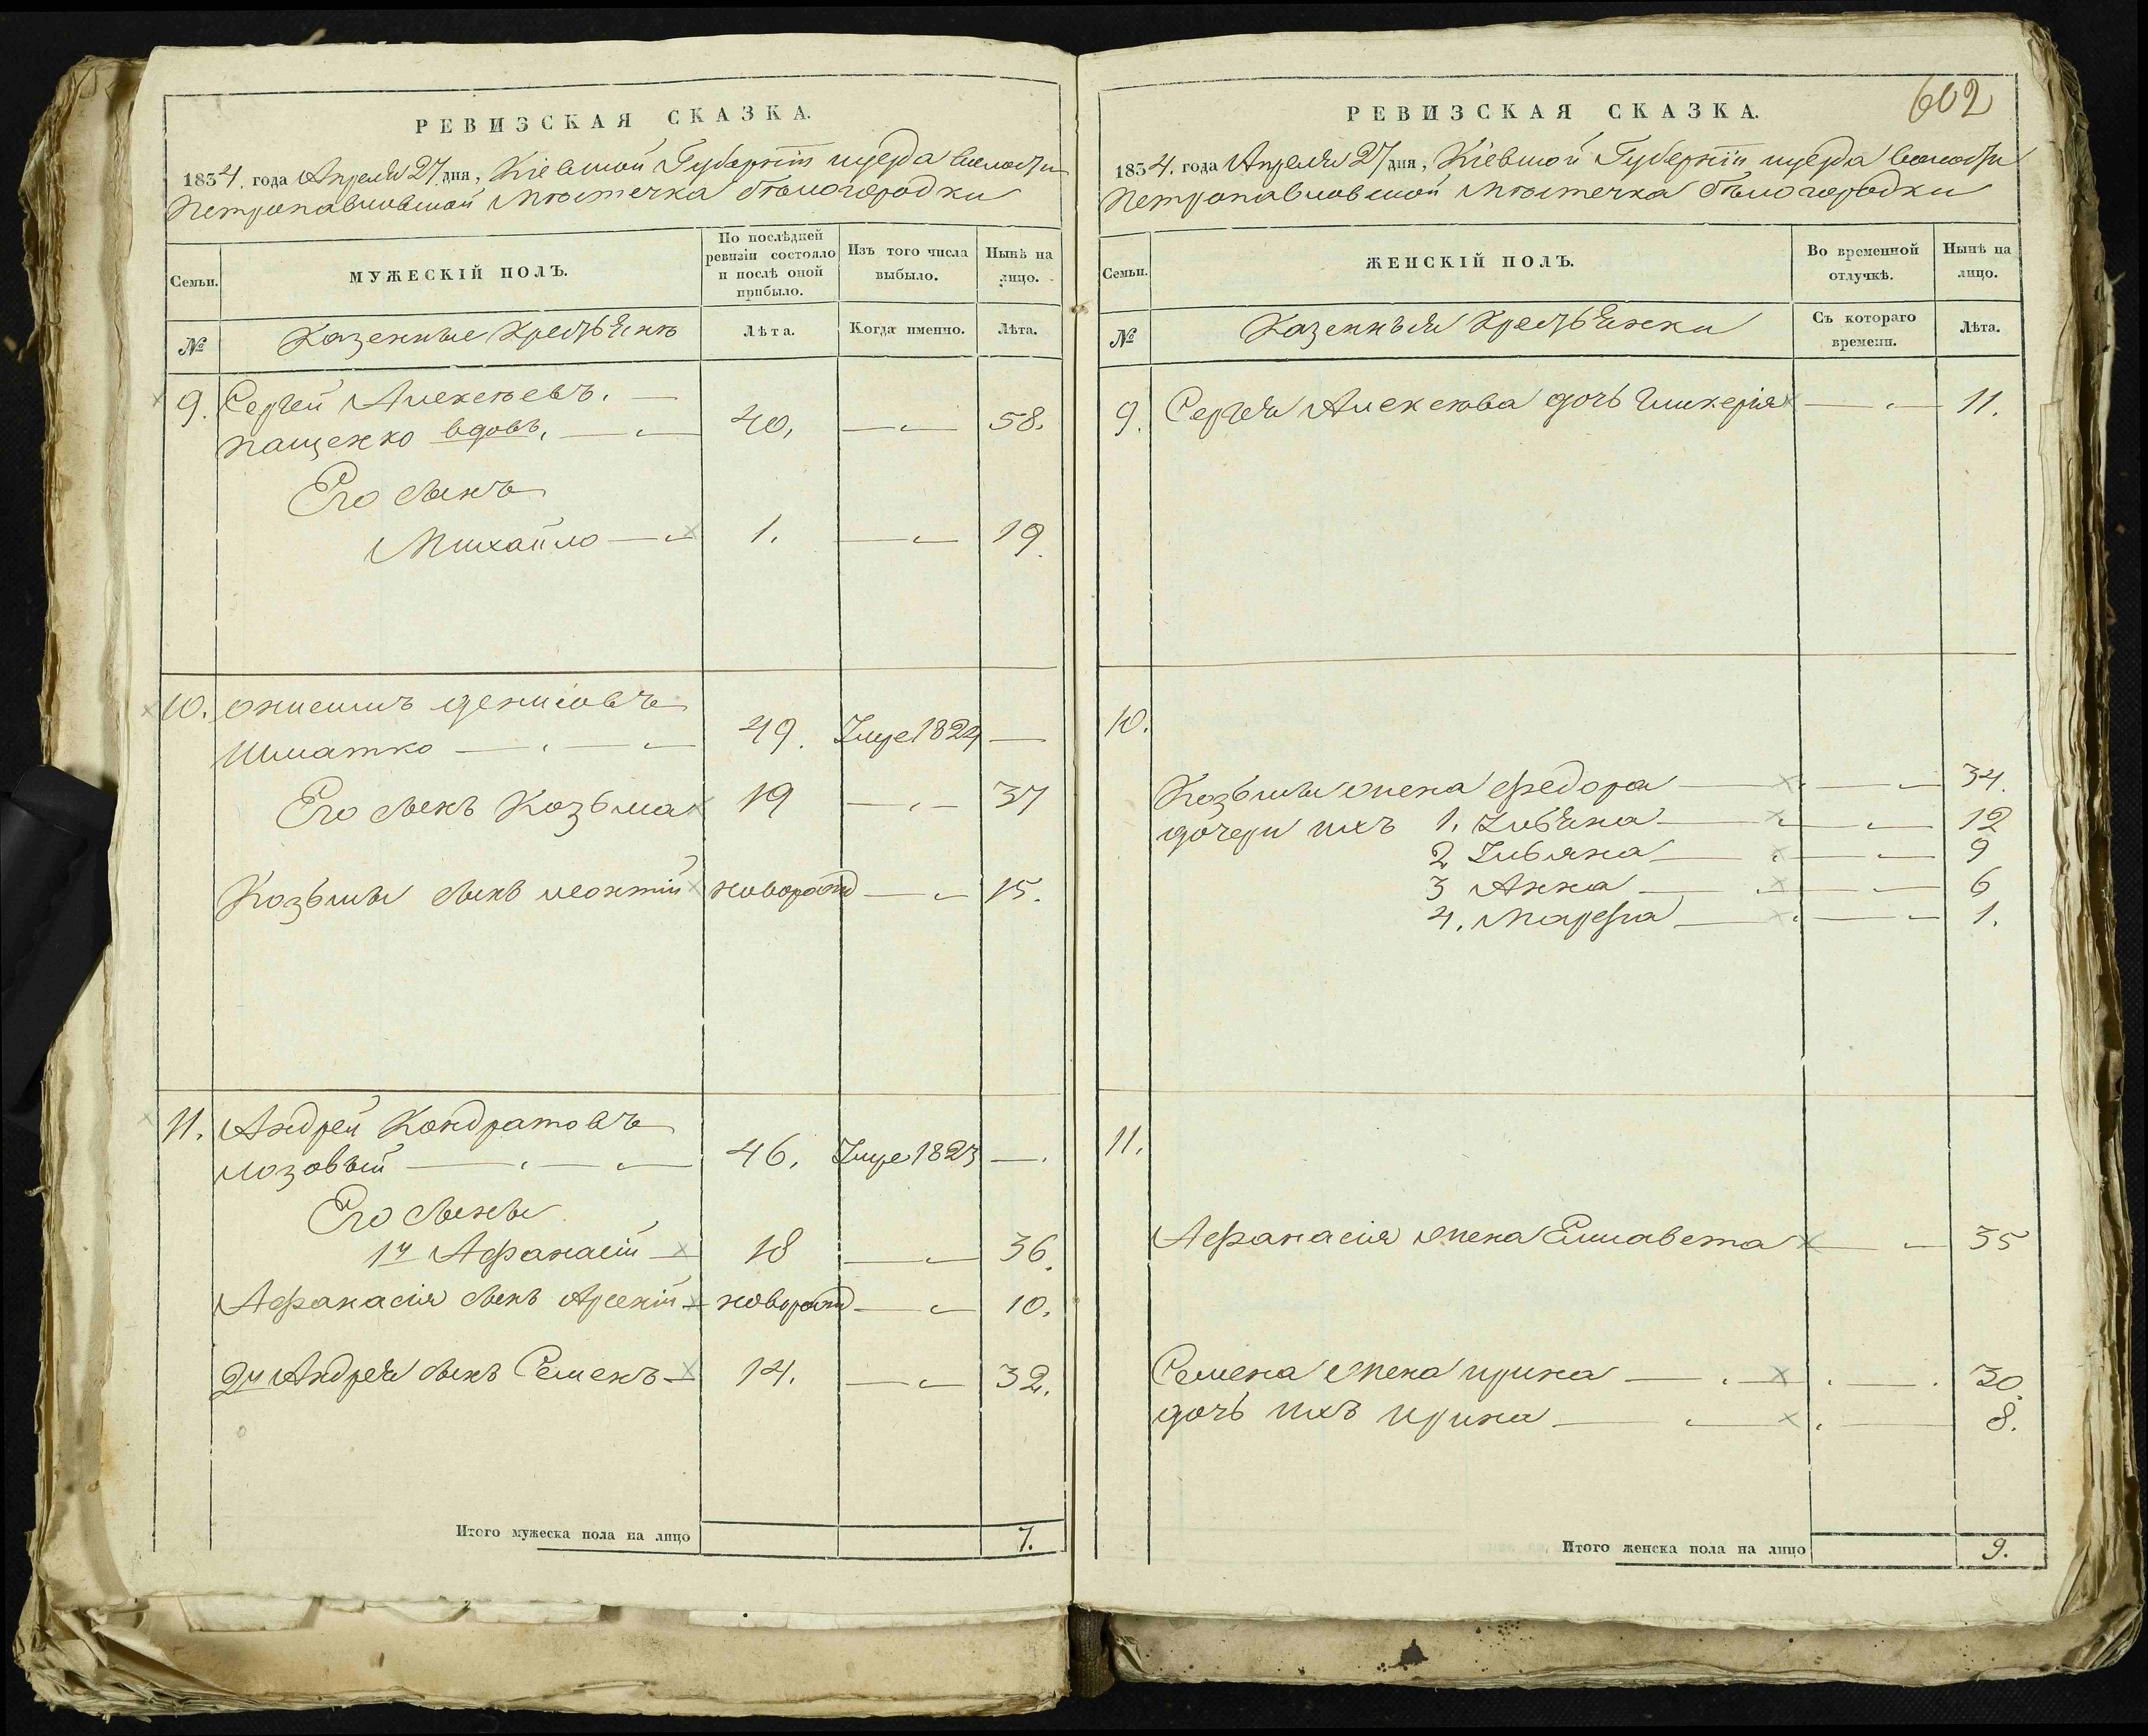 РЕВИЗСКАЯ СКАЗКА.
1834. года Апреля 27 дня, Кіевской Губерніи уезда волости
Петропавловской Мѣстечка Бѣлогородки
Семьи.
МУЖЕСКІЙ ПОЛЪ.
По послѣдней ревизіи состояло и послѣ оной прибыло.
Изъ того числа выбыло.
Нынѣ на лицо.
№
Казенные Крестьяне
Лѣта.
Когда именно.
Лѣта.
9. Сергей Алексеевъ.
Пащенко вдовъ. 40. 58.
Его сынъ
Михайло 1. 19.
10. Онисимъ Денисовъ
Шматко 49. Умре 1824
Его сынъ Козьма 19 37
Козьмы сынъ Леонтій новорожд 15.
11. Андрей Кондратовъ
Лозовый 46. Умре 1823
Его сыны
1й Афанасій 18 36.
Афанасія сынъ Арсеній новорожд 10.
2й Андрея сынъ Семенъ 14. 32.
Итого мужеска пола на лицо 7.
602
РЕВИЗСКАЯ СКАЗКА.
1834. года Апреля 27 дня, Кіевской Губерніи уезда волости
Петропавловской Мѣстечка Бѣлогородки
Семьи.
ЖЕНСКІЙ ПОЛЪ.
Во временной отлучкѣ.
Нынѣ на лицо.
№
Казенныя Крестьянки
Съ котораго времени.
Лѣта.
9. Сергея Алексеева дочь Гликерія 11.
10.
Козьмы жена Федора 34.
дочери ихъ 1. Ульяна 12
2 Ульяна 9
3 Анна 6
4. Марфа 1.
11.
Афанасія жена Елисавета 35
Семена жена Ирина 30.
дочь ихъ Ирина 8.
Итого женска пола на лицо 9.